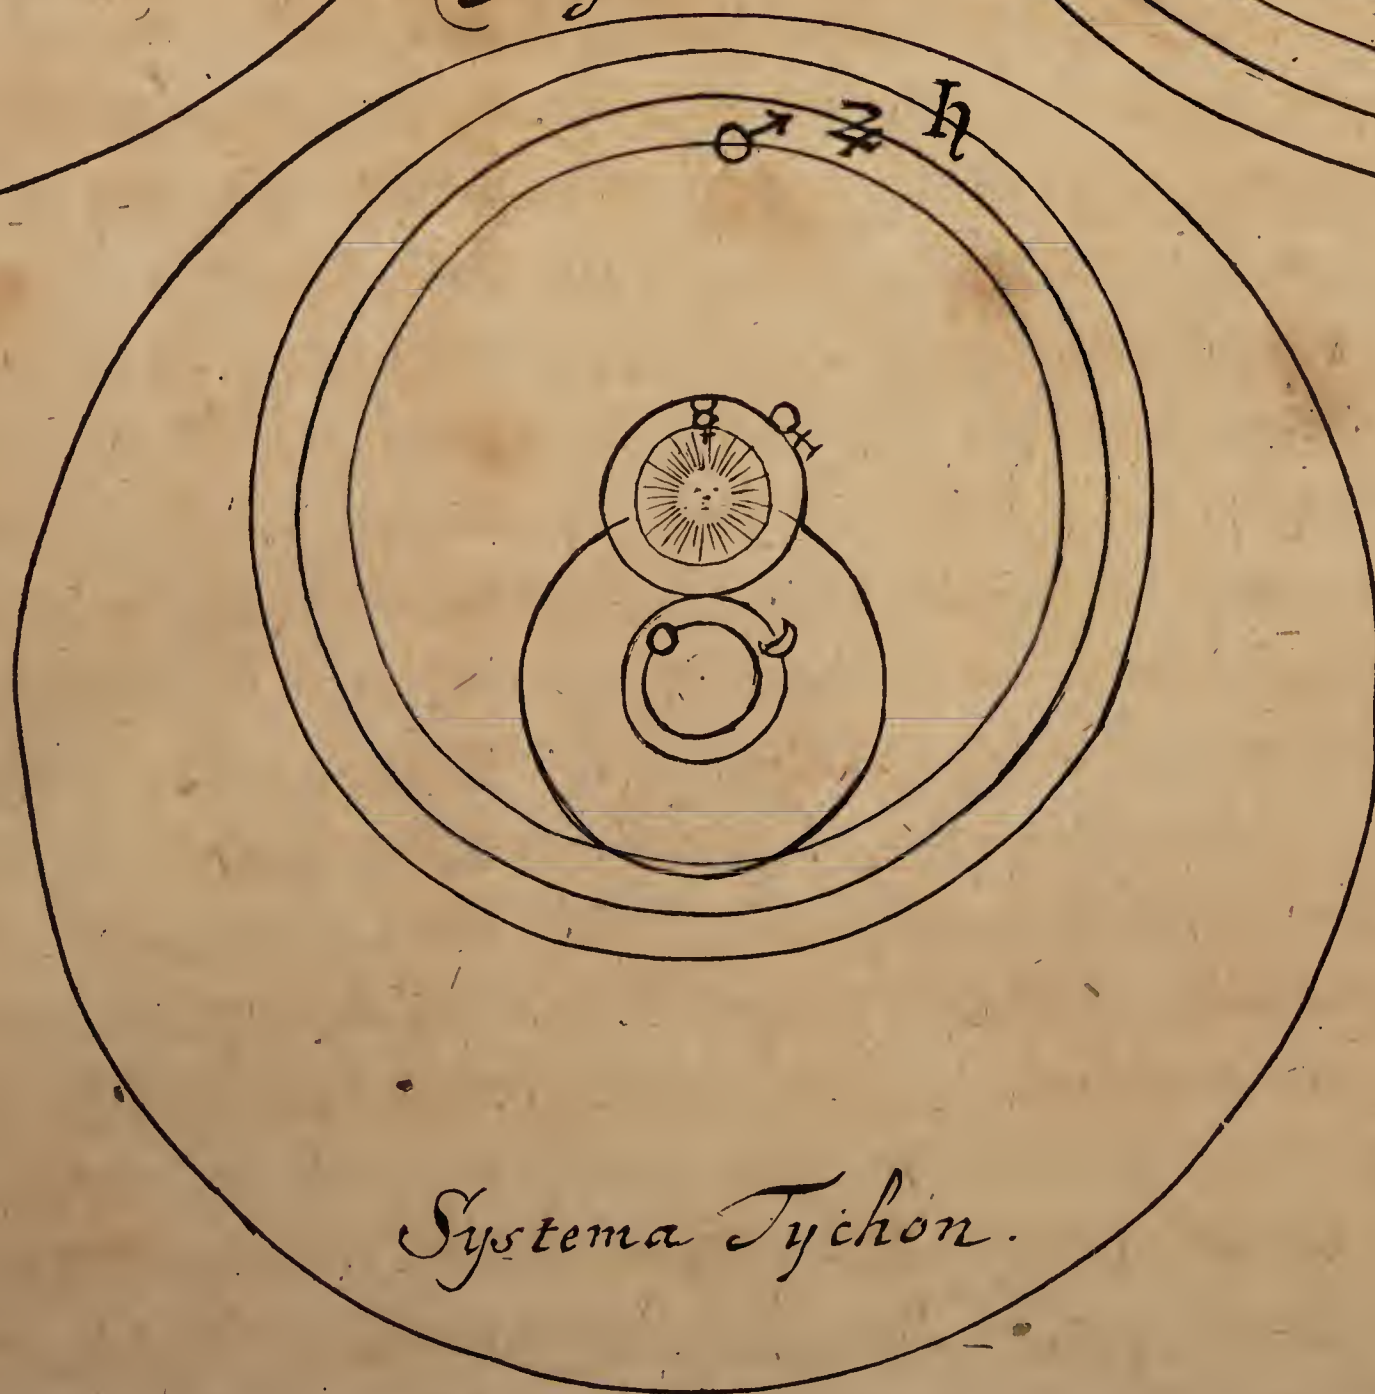 ♂ ♃ ♄
☿ ♀
Systema Tychon.